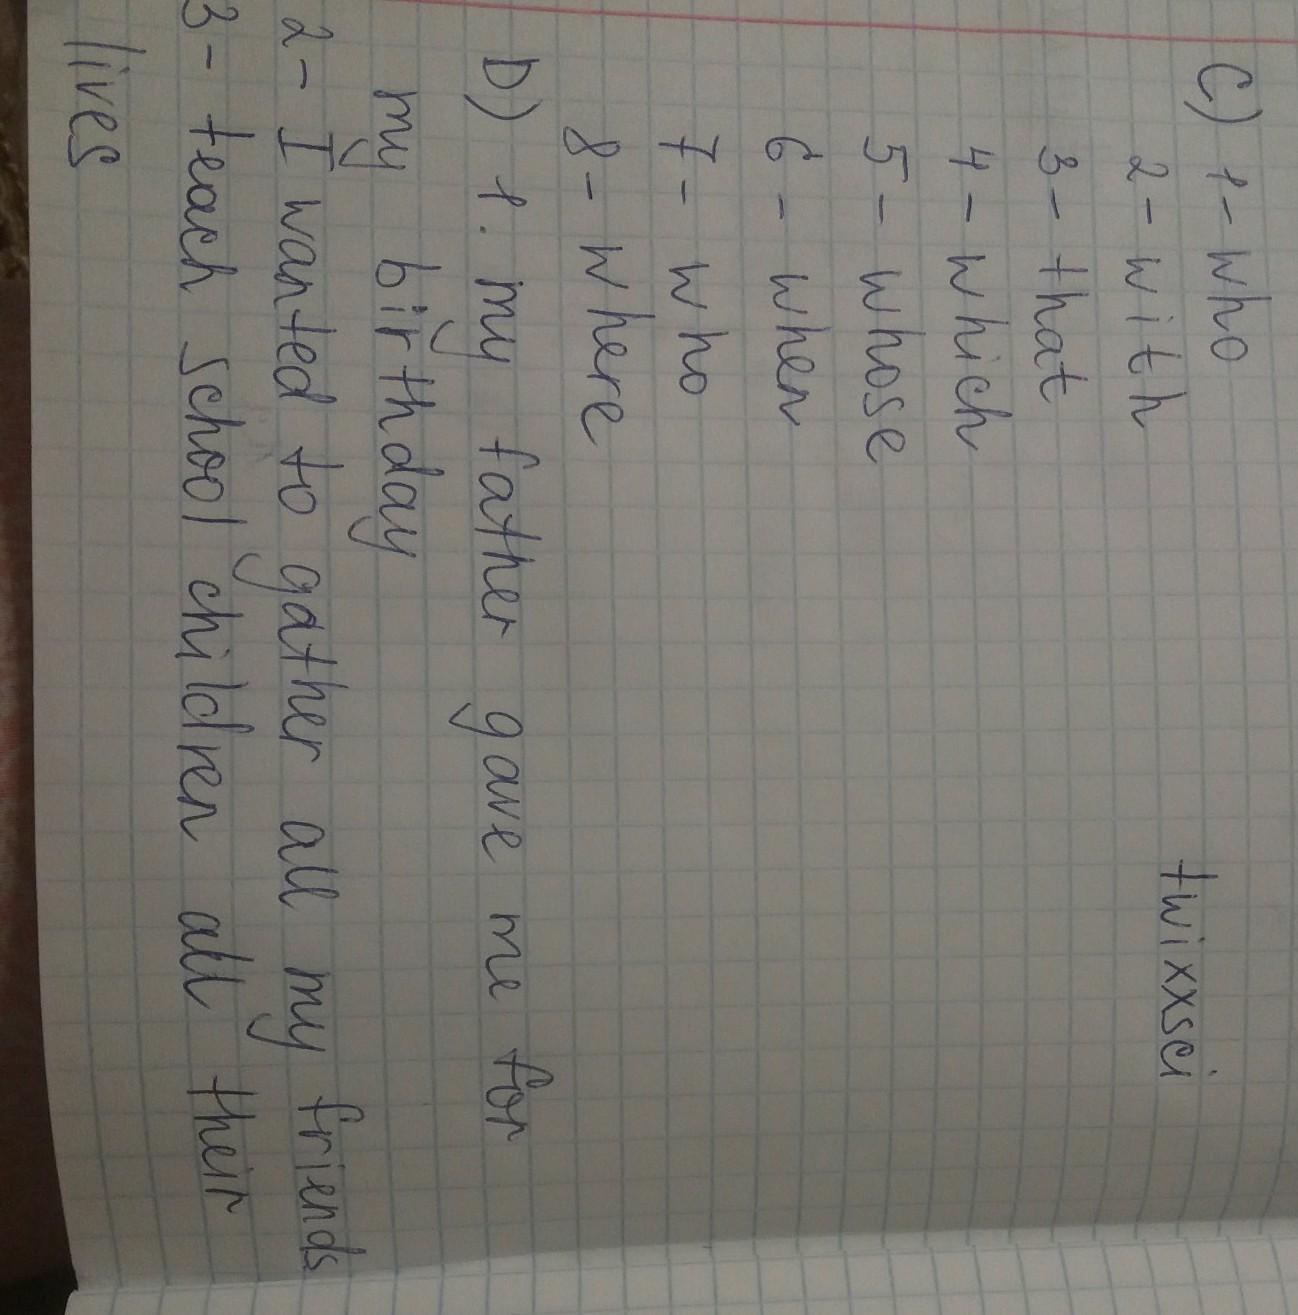 C) 1-who
twixxsci
2-with
3-that
4-which
5-whose
6-when
7-who
8-where
D) 1. my father gave me for
my birthday
2-I wanted to gather all my friends
3-teach school children all their
lives